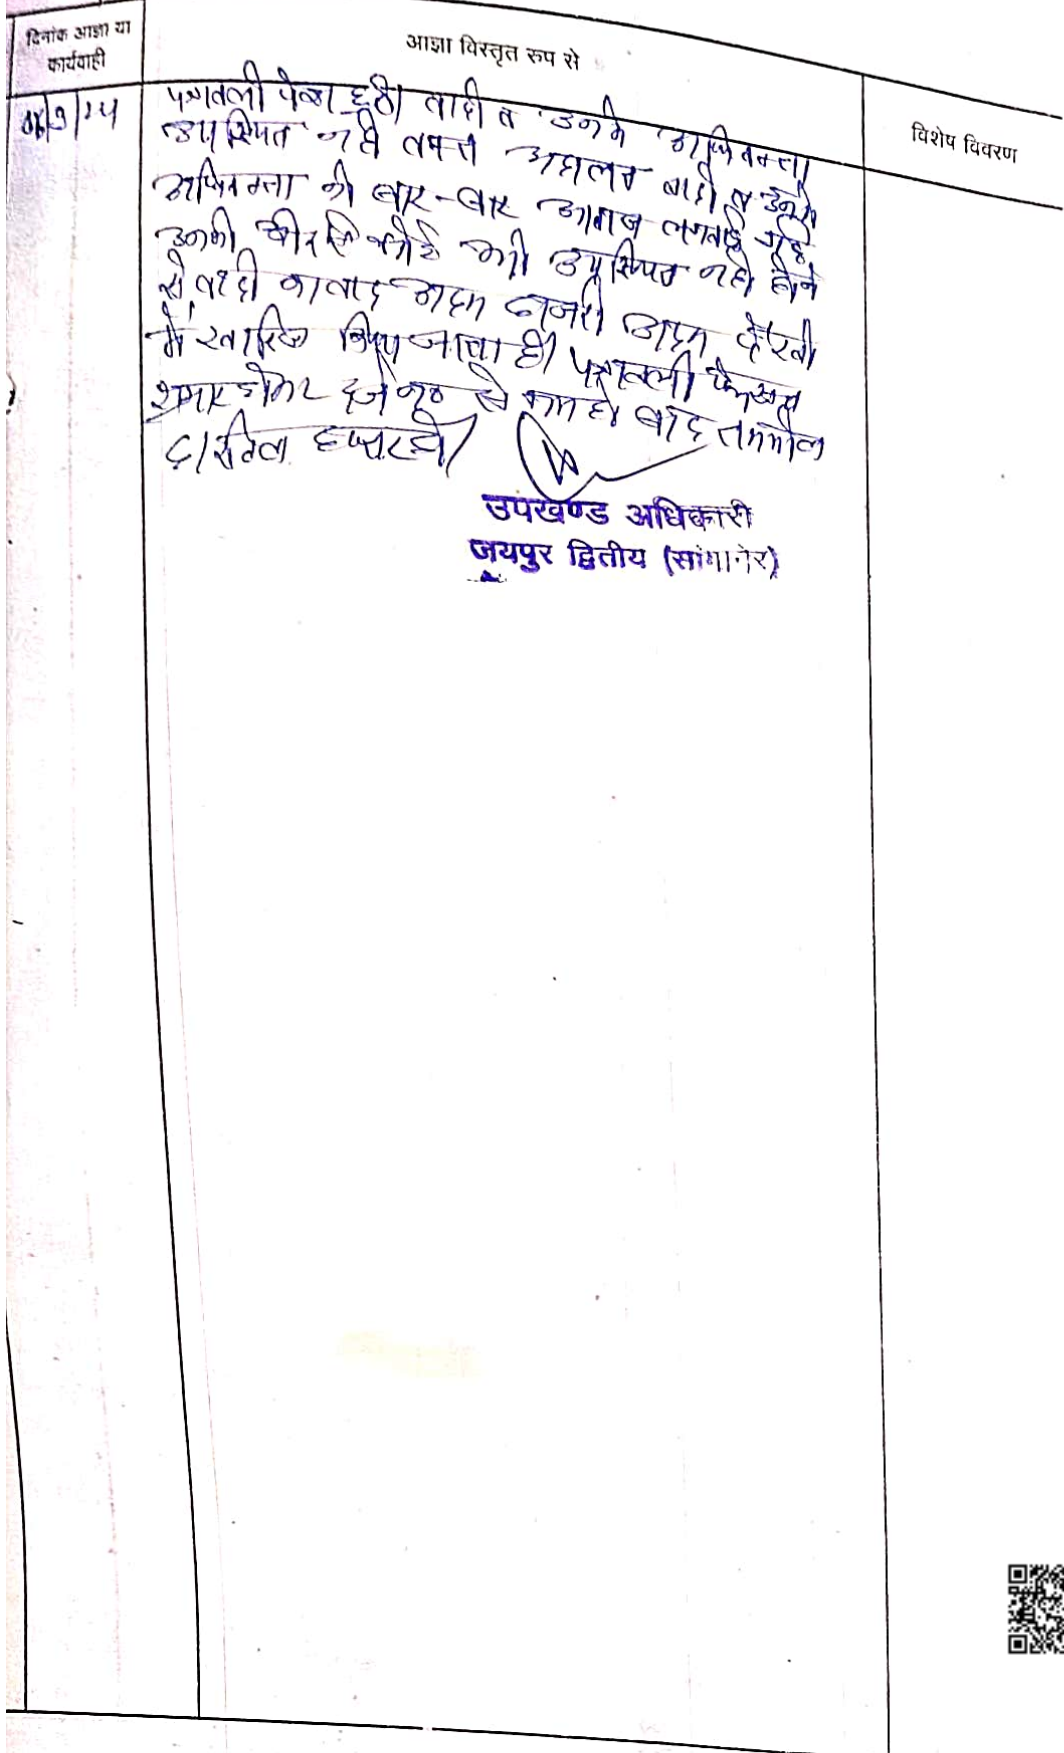 दिनांक आज्ञा या
कार्यवाही
आज्ञा विस्तृत रुप से
विशेष विवरण
पत्रावली पेश हुई। वादी व उनके अभिवक्ता
उपस्थित नहीं वक्त अदालत वादी व उनके
अभिवक्ता को बार-बार आवाज लगवाई गई
उनकी ओर से कोई भी उपस्थित नहीं होने
से वादी का वाद अदम हाजरी अदम पैरवी
में खारिज किया जाता है। पत्रावली फैसल
शुमार होकर दर्ज नम्बर से कम हो बाद तकमील
दाखिल दफ्तर हो।
उपखण्ड अधिकारी
जयपुर द्वितीय (सांगानेर)